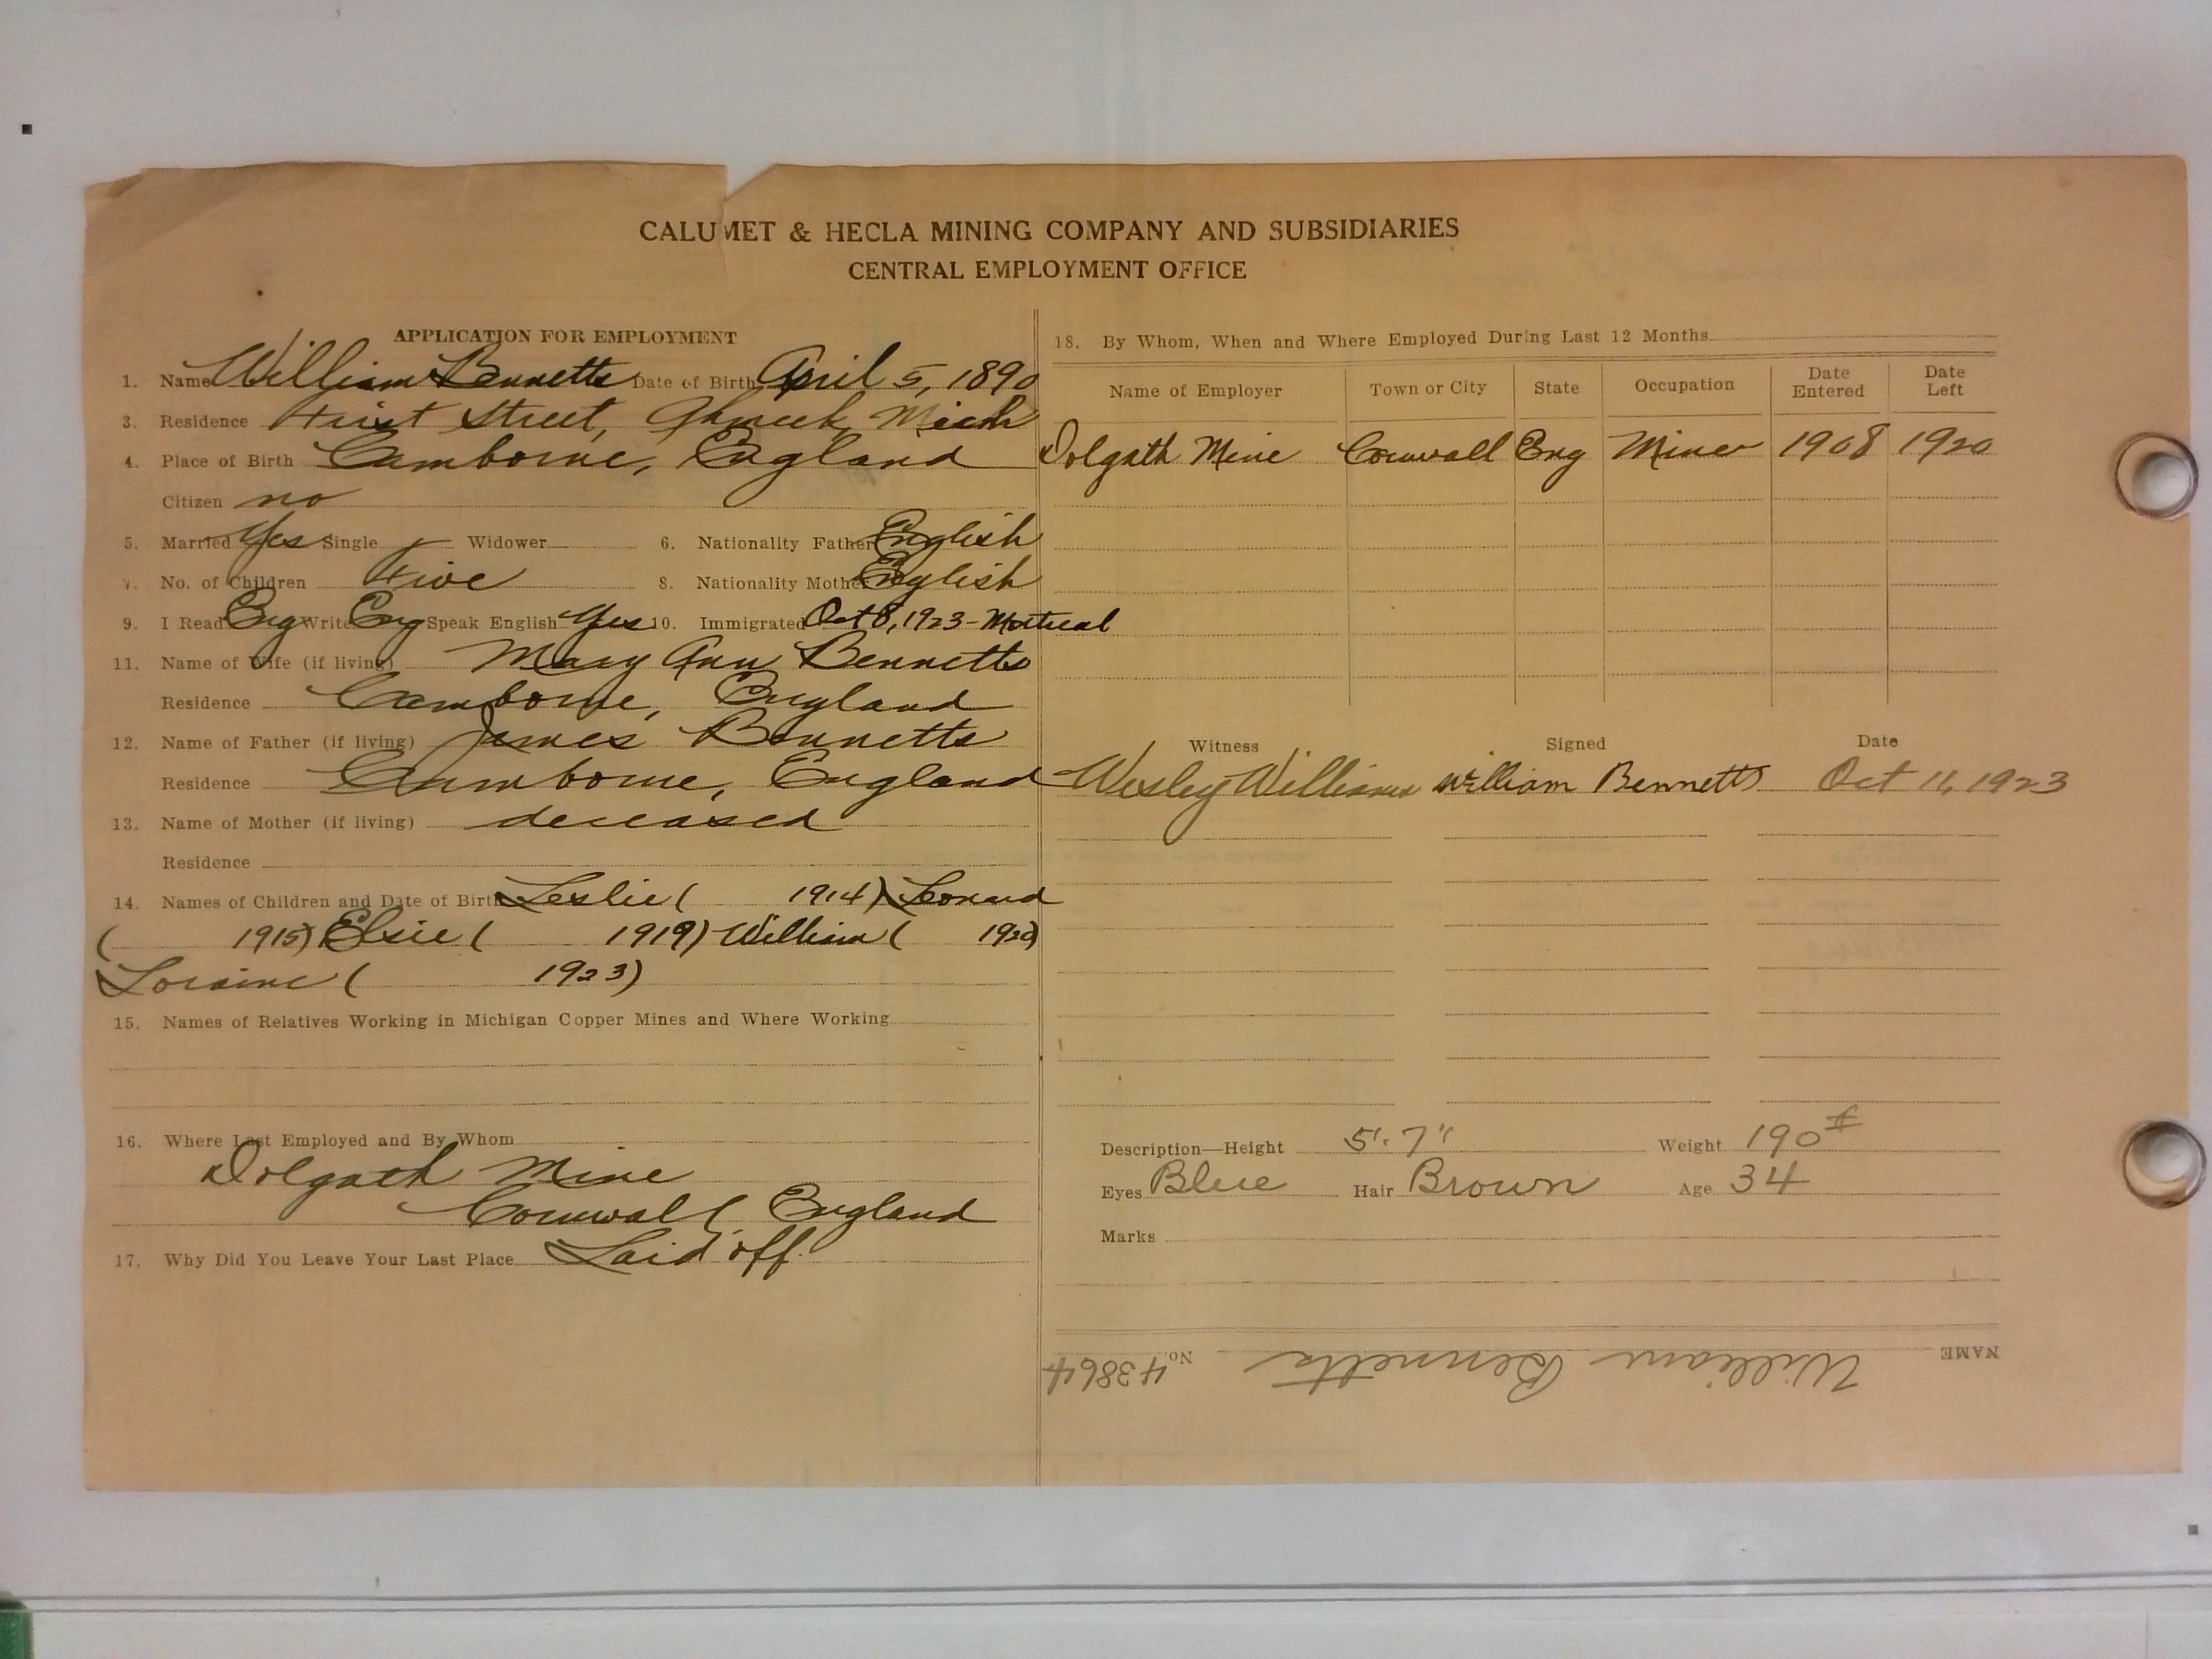 CALUMET & HECLA MINING COMPANY AND SUBSIDIARIES
CENTRAL EMPLOYMENT OFFICE
APPLICATION FOR EMPLOYMENT
1. Name William Bennetts Date of Birth April 5, 1890
3. Residence First Street, Ahmeek, Mich
4. Place of Birth Camborne, England
Citizen no
5. Married Yes Single Widower 6. Nationality Father English
7. No. of Children Five 8. Nationality Mother English
9. I Read Eng Write Eng Speak English Yes 10. Immigrated Oct 8, 1923 -
11. Name of Wife (if living) Mary Ann Bennetts
Residence Camborne, England
12. Name of Father (if living) James Bennetts
Residence Camborne, England
13. Name of Mother (if living) deceased
Residence
14. Names of Children and Date of Birth Leslie ( 1914) Leonard
( 1915) Elsie ( 1919) William ( 1920)
Loraine ( 1923)
15. Names of Relatives Working in Michigan Copper Mines and Where Working
16. Where Last Employed and By Whom
Dolgath Mine
Cornwall, England
17. Why Did You Leave Your Last Place Laid off.
18. By Whom, When and Where Employed During Last 12 Months
Name of Employer Town or City State Occupation Date Entered Date Left
Dolgath Mine Cornwall Eng Miner 1908 1920
Witness Signed Date
Wesley Williams William Bennetts Oct 11, 1923
Description—Height 5'. 7" Weight 190#
Eyes Blue Hair Brown Age 34
Marks
NAME William Bennetts No. 43864